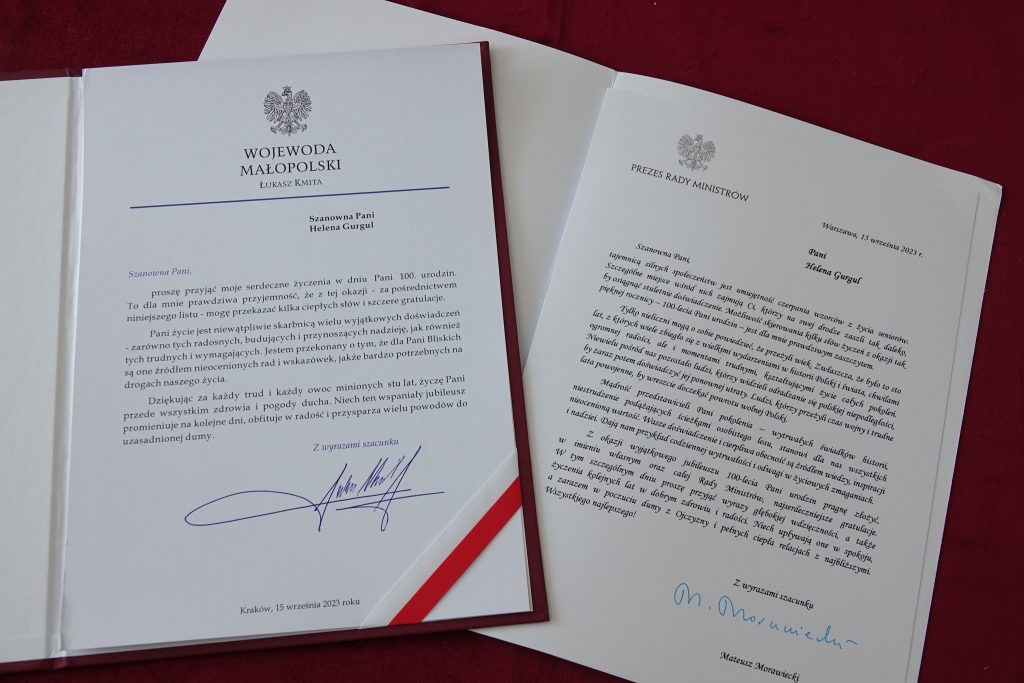 WOJEWODA
MAŁOPOLSKI
ŁUKASZ KMITA
Szanowna Pani
Helena Gurgul
Szanowna Pani,
proszę przyjąć moje serdeczne życzenia w dniu Pani 100. urodzin.
To dla mnie prawdziwa przyjemność, że z tej okazji - za pośrednictwem
niniejszego listu - mogę przekazać kilka ciepłych słów i szczere gratulacje.
Pani życie jest niewątpliwie skarbnicą wielu wyjątkowych doświadczeń
- zarówno tych radosnych, budujących i przynoszących nadzieję, jak również
tych trudnych i wymagających. Jestem przekonany o tym, że dla Pani Bliskich
są one źródłem nieocenionych rad i wskazówek, jakże bardzo potrzebnych na
drogach naszego życia.
Dziękując za każdy trud i każdy owoc minionych stu lat, życzę Pani
przede wszystkim zdrowia i pogody ducha. Niech ten wspaniały jubileusz
promieniuje na kolejne dni, obfituje w radość i przysparza wielu powodów do
uzasadnionej dumy.
Z wyrazami szacunku
Kraków, 15 września 2023 roku
PREZES RADY MINISTRÓW
Warszawa, 15 września 2023 r.
Pani
Helena Gurgul
Szanowna Pani,
tajemnicą silnych społeczeństw jest umiejętność czerpania wzorców z życia seniorów.
Szczególne miejsce wśród nich zajmują Ci, którzy na swej drodze zaszli tak daleko,
by osiągnąć stuletnie doświadczenie. Możliwość skierowania kilku słów życzeń z okazji tak
pięknej rocznicy – 100-lecia Pani urodzin – jest dla mnie prawdziwym zaszczytem.
Tylko nieliczni mogą o sobie powiedzieć, że przeżyli wiek. Zwłaszcza, że było to sto
lat, z których wiele zbiegło się z wielkimi wydarzeniami w historii Polski i świata, chwilami
ogromnej radości, ale i momentami trudnymi, kształtującymi życie całych pokoleń.
Niewielu pośród nas pozostało ludzi, którzy widzieli odradzanie się polskiej niepodległości,
by zaraz potem doświadczyć jej ponownej utraty. Ludzi, którzy przeżyli czas wojny i trudne
lata powojenne, by wreszcie doczekać powrotu wolnej Polski.
Mądrość przedstawicieli Pani pokolenia – wytrwałych świadków historii,
niestrudzenie podążających ścieżkami osobistego losu, stanowi dla nas wszystkich
nieocenioną wartość. Wasze doświadczenie i cierpliwa obecność są źródłem wiedzy, inspiracji
i nadziei. Dają nam przykład codziennej wytrwałości i odwagi w życiowych zmaganiach.
Z okazji wyjątkowego jubileuszu 100-lecia Pani urodzin pragnę złożyć,
w imieniu własnym oraz całej Rady Ministrów, najserdeczniejsze gratulacje.
W tym szczególnym dniu proszę przyjąć wyrazy głębokiej wdzięczności, a także
życzenia kolejnych lat w dobrym zdrowiu i radości. Niech upływają one w spokoju,
a zarazem w poczuciu dumy z Ojczyzny i pełnych ciepła relacjach z najbliższymi.
Wszystkiego najlepszego!
Z wyrazami szacunku
M. Morawiecki
Mateusz Morawiecki